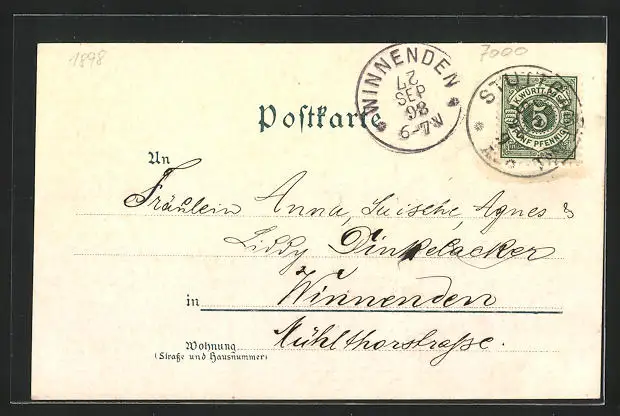 1898
7000
WINNENDEN
27
SEP
98
6-7N
STUTTG
K. WÜRTT. POST
5
FÜNF PFENNIG
Postkarte
An
Fräulein Anna, Luische, Agnes &
Liddy Dinkelacker
in Winnenden
Mühlthorstraße.
Wohnung
(Straße und Hausnummer)